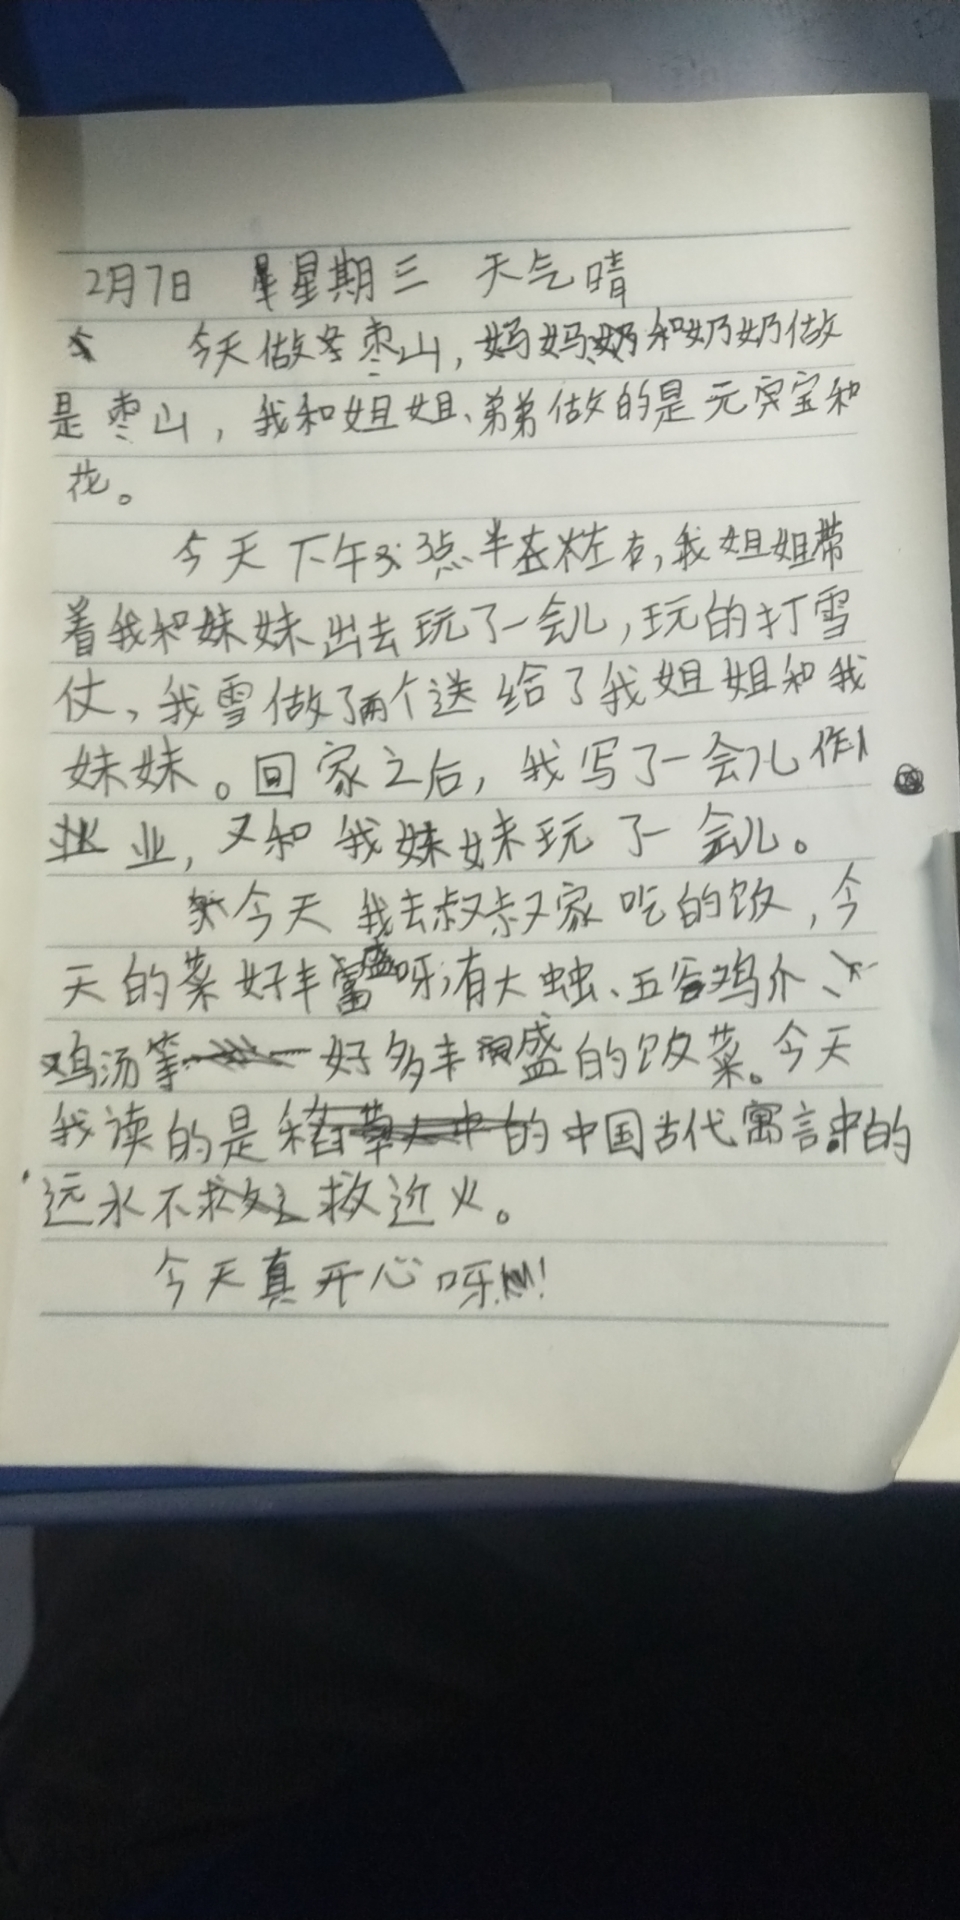 2月7日 星期三 天气晴
今天做枣山，妈妈和奶奶做
是枣山，我和姐姐、弟弟做的是元宝和
花。
今天下午3点半左右，我姐姐带
着我和妹妹出去玩了一会儿，玩的打雪
仗，我雪做了两个送给了我姐姐和我
妹妹。回家之后，我写了一会儿作
业，又和我妹妹玩了一会儿。
今天我去叔叔家吃的饭，今
天的菜好丰盛呀，有大虫、五谷鸡介、
鸡汤等好多丰盛的饭菜。今天
我读的是中国古代寓言中的
远水不救近火。
今天真开心呀！